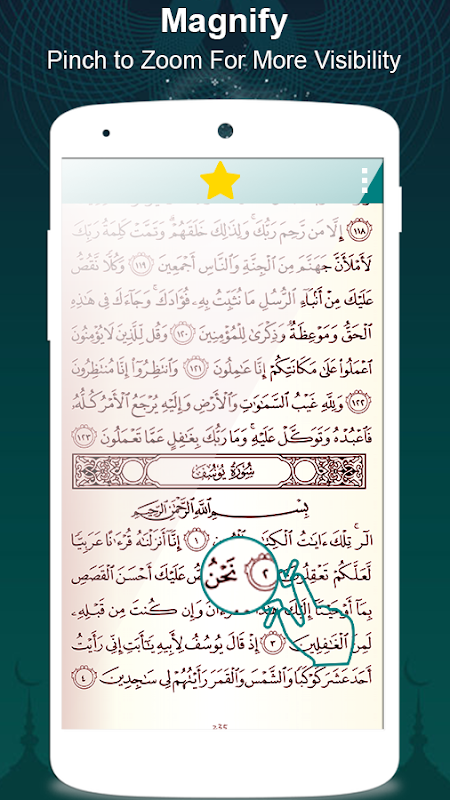 Magnify
Pinch to Zoom For More Visibility
١١٨ إِلَّا مَن رَّحِمَ رَبُّكَ ۚ وَلِذَٰلِكَ خَلَقَهُمْ ۗ وَتَمَّتْ كَلِمَةُ رَبِّكَ
لَأَمْلَأَنَّ جَهَنَّمَ مِنَ الْجِنَّةِ وَالنَّاسِ أَجْمَعِينَ ١١٩ وَكُلًّا نَّقُصُّ
عَلَيْكَ مِنْ أَنبَاءِ الرُّسُلِ مَا نُثَبِّتُ بِهِ فُؤَادَكَ ۚ وَجَاءَكَ فِي هَٰذِهِ
الْحَقُّ وَمَوْعِظَةٌ وَذِكْرَىٰ لِلْمُؤْمِنِينَ ١٢٠ وَقُل لِّلَّذِينَ لَا يُؤْمِنُونَ
اعْمَلُوا عَلَىٰ مَكَانَتِكُمْ إِنَّا عَامِلُونَ ١٢١ وَانتَظِرُوا إِنَّا مُنتَظِرُونَ
١٢٢ وَلِلَّهِ غَيْبُ السَّمَاوَاتِ وَالْأَرْضِ وَإِلَيْهِ يُرْجَعُ الْأَمْرُ كُلُّهُ
فَاعْبُدْهُ وَتَوَكَّلْ عَلَيْهِ ۚ وَمَا رَبُّكَ بِغَافِلٍ عَمَّا تَعْمَلُونَ ١٢٣
سُورَةُ يُوسُفَ
بِسْمِ اللَّهِ الرَّحْمَٰنِ الرَّحِيمِ
الٓر ۚ تِلْكَ ءَايَٰتُ الْكِتَٰبِ ١ إِنَّا أَنزَلْنَٰهُ قُرْءَٰنًا عَرَبِيًّا
لَّعَلَّكُمْ تَعْقِلُونَ ٢ نَحْنُ نَقُصُّ عَلَيْكَ أَحْسَنَ الْقَصَصِ
بِمَا أَوْحَيْنَا إِلَيْكَ وَإِن كُنتَ مِن قَبْلِهِ
لَمِنَ الْغَٰفِلِينَ ٣ إِذْ قَالَ يُوسُفُ لِأَبِيهِ يَٰٓأَبَتِ إِنِّي رَأَيْتُ
أَحَدَ عَشَرَ كَوْكَبًا وَالشَّمْسَ وَالْقَمَرَ رَأَيْتُهُمْ لِي سَٰجِدِينَ ٤